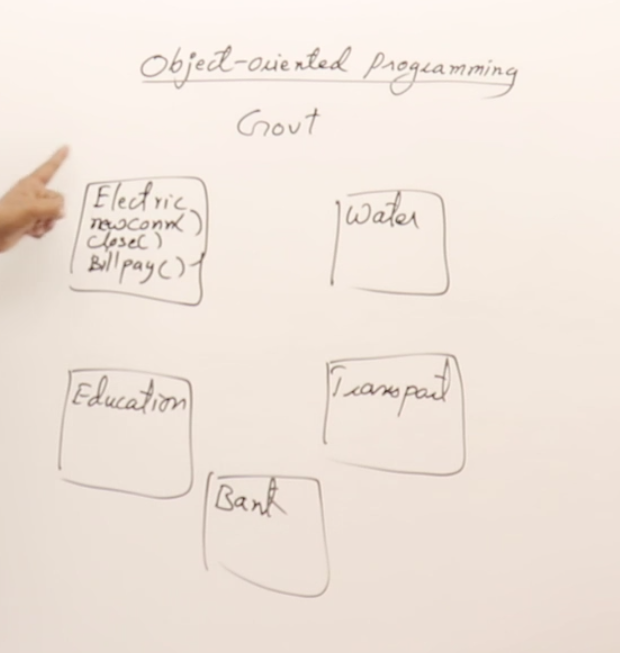 Object-oriented programming
Govt
Electric
newconn()
close()
Billpay()
Water
Education
Transport
Bank